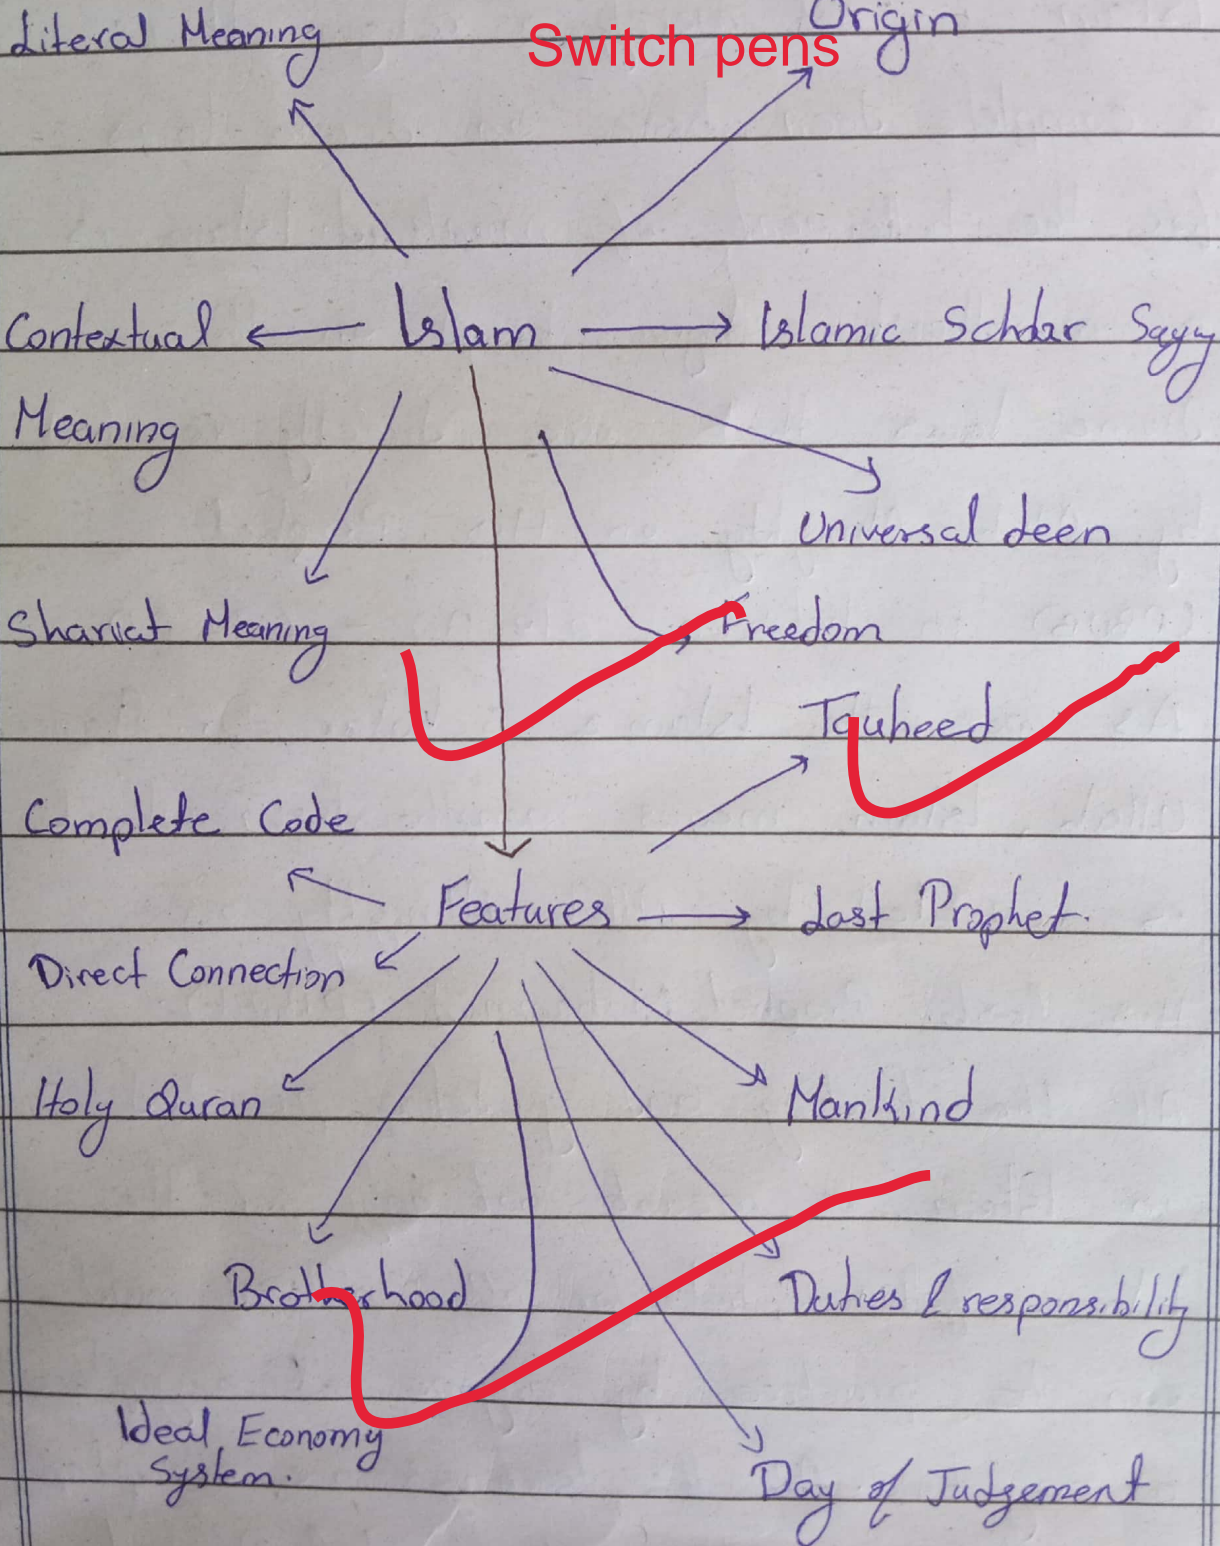 Literal Meaning
Switch pens
Origin
Contextual
Islam
Islamic Scholar Sayy
Meaning
Universal deen
Shariat Meaning
Freedom
Tauheed
Complete Code
Features
Last Prophet.
Direct Connection
Holy Quran
Mankind
Brotherhood
Duties & responsibility
Ideal Economy
System.
Day of Judgement